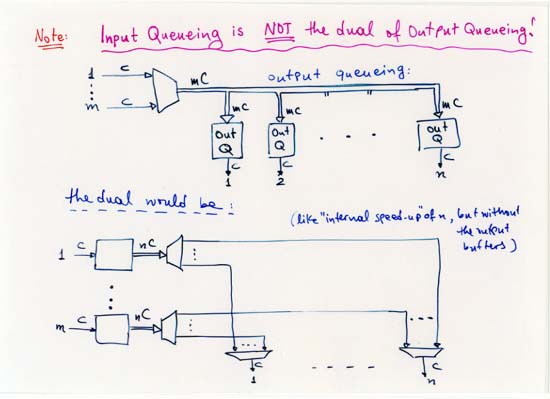 Note: Input Queueing is NOT the dual of Output Queueing!
output queueing:
1 c
m c
mC
" "
mC mC mC
Out Q Out Q Out Q
c c c
1 2 n
the dual would be:
(like "internal speed-up" of n, but without
the output
buffers)
1 c nC
m c nC
c c
1 n